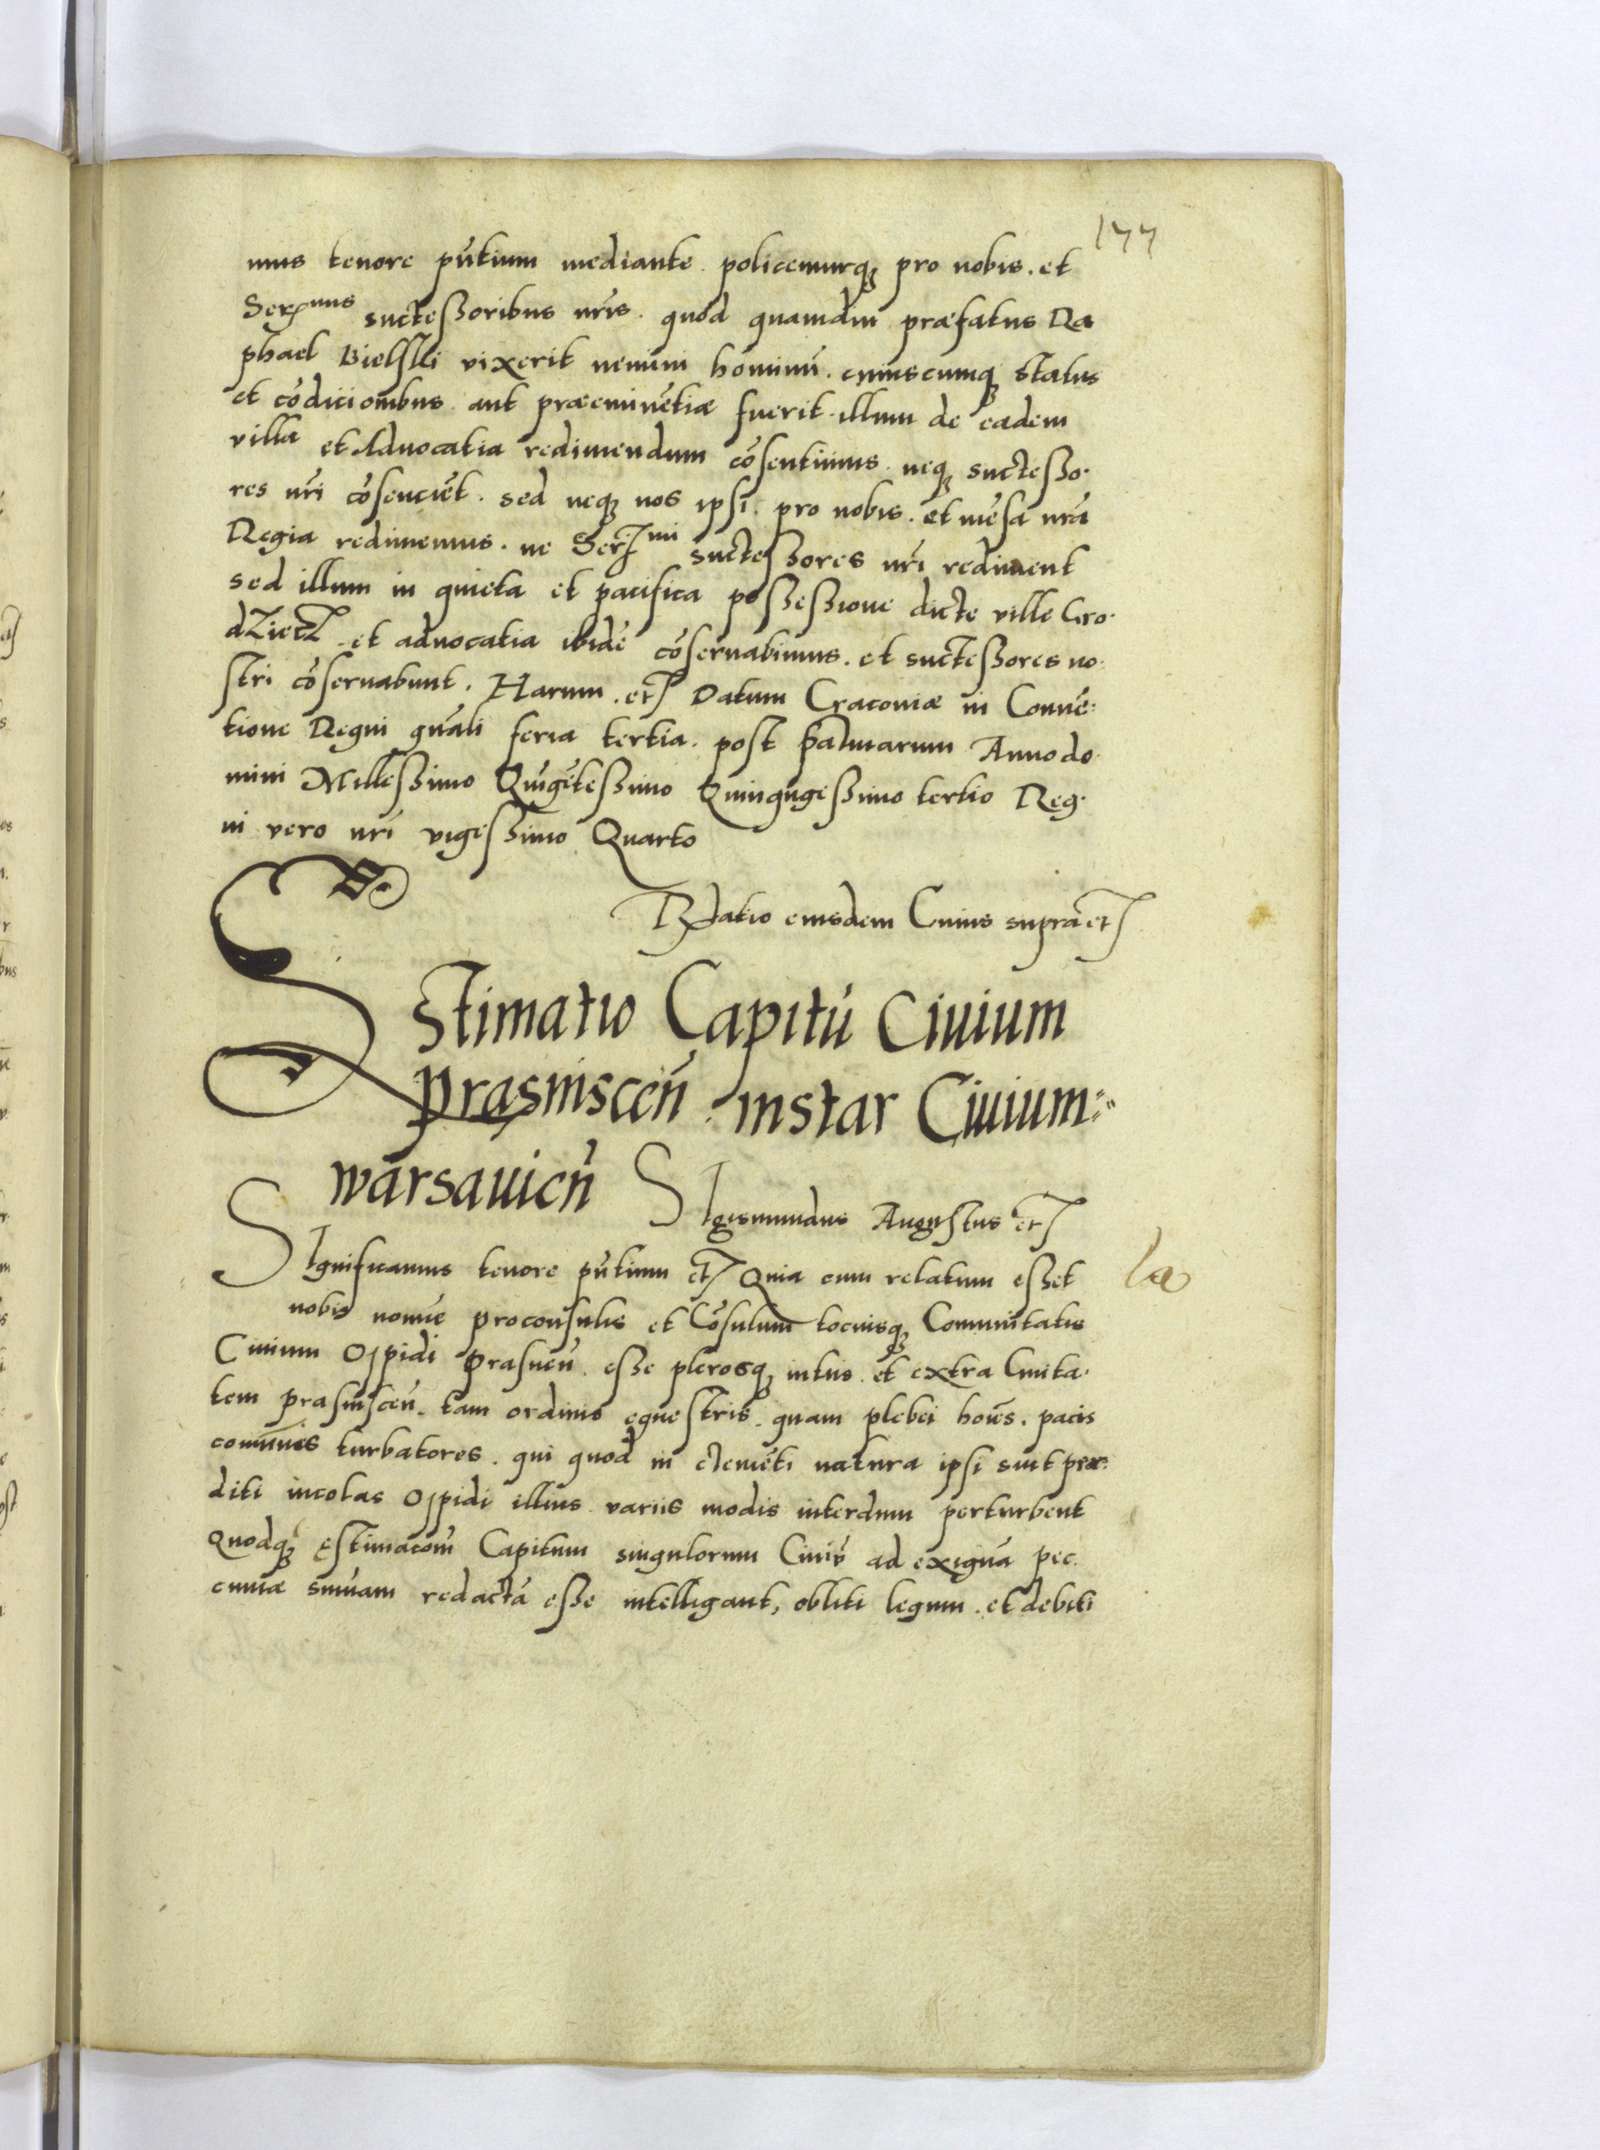 177
mus tenore pñtium mediante policemurq3 pro nobis. et
Ser mis suctessoribus nrĩs. quod quamdiu præfatus Ra
phael Bielski vixerit nemini hominũ. cuiuscumq3 status
et cõdiciombus. aut præeminẽtiæ fuerit. illum de eadem
villa et Advocatia redimendum cõsentimus. neq3 suctesso.
res nrĩ cõsenciẽt. sed neq3 nos ipsi. pro nobis. et mẽsa nrã
Regia redimemus. ne Ser mi suctessores nrĩ rediment
sed illum in quieta et pacifica possessione dicte ville Gro.
dziecz et advocatia ibidẽ cõseruabimus. et suctessores no.
stri cõseruabunt. Harum. etc Datum Cracoviæ in Conuẽ:
tione Regni gñali feria tertia. post palmarum Anno do.
mini Millessimo Quĩgẽtessimo Quinqũgessimo tertio Reg.
ni vero nrĩ vigessimo Quarto
Rłatio eiusdem Cuius supra etc
Estimatio Capitũ Ciuium
prasniscen̄ instar Ciuium
warsauien̄ SIgismundus Augustus etc
SIgnificamus tenore pñtium etc Quia cum relatum esset
nobis nomĩe proconsulis et Cõsulum tociusq3 Communitatis
Ciuium Oppidi Prasnen̄. esse plerosq3 intus. et extra Ciuita.
tem prasniscen̄. tam ordinis equestris. quam plebei hoĩes. pacis
comunis turbatores. qui quod in clemẽti natura ipsi sint præ:
diti incolas Oppidi illius variis modis interdum perturbent
Quodq3 Estimacom̃ Capitum singulorum Ciuiũ ad exiguã pec.
cuniæ sumam redactã esse intelligant, obliti legum. et debiti
la